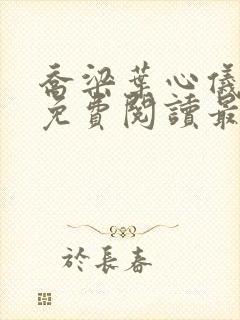 喬梁葉心儀
免費閱讀最
於長春